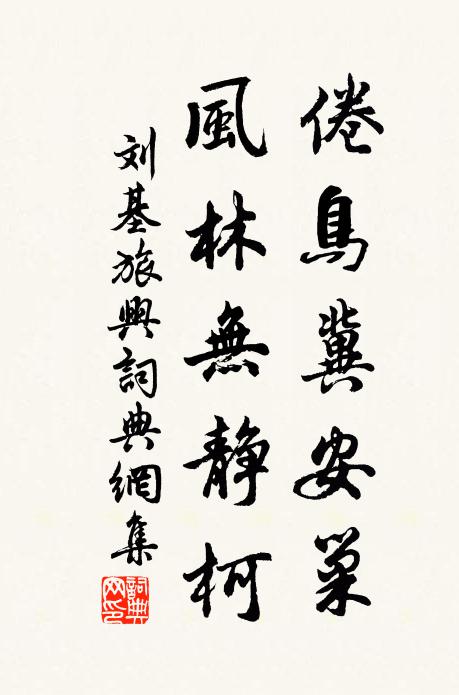 倦鳥冀安巢
風林無静柯
刘基旅興詞典網集
詞典網印